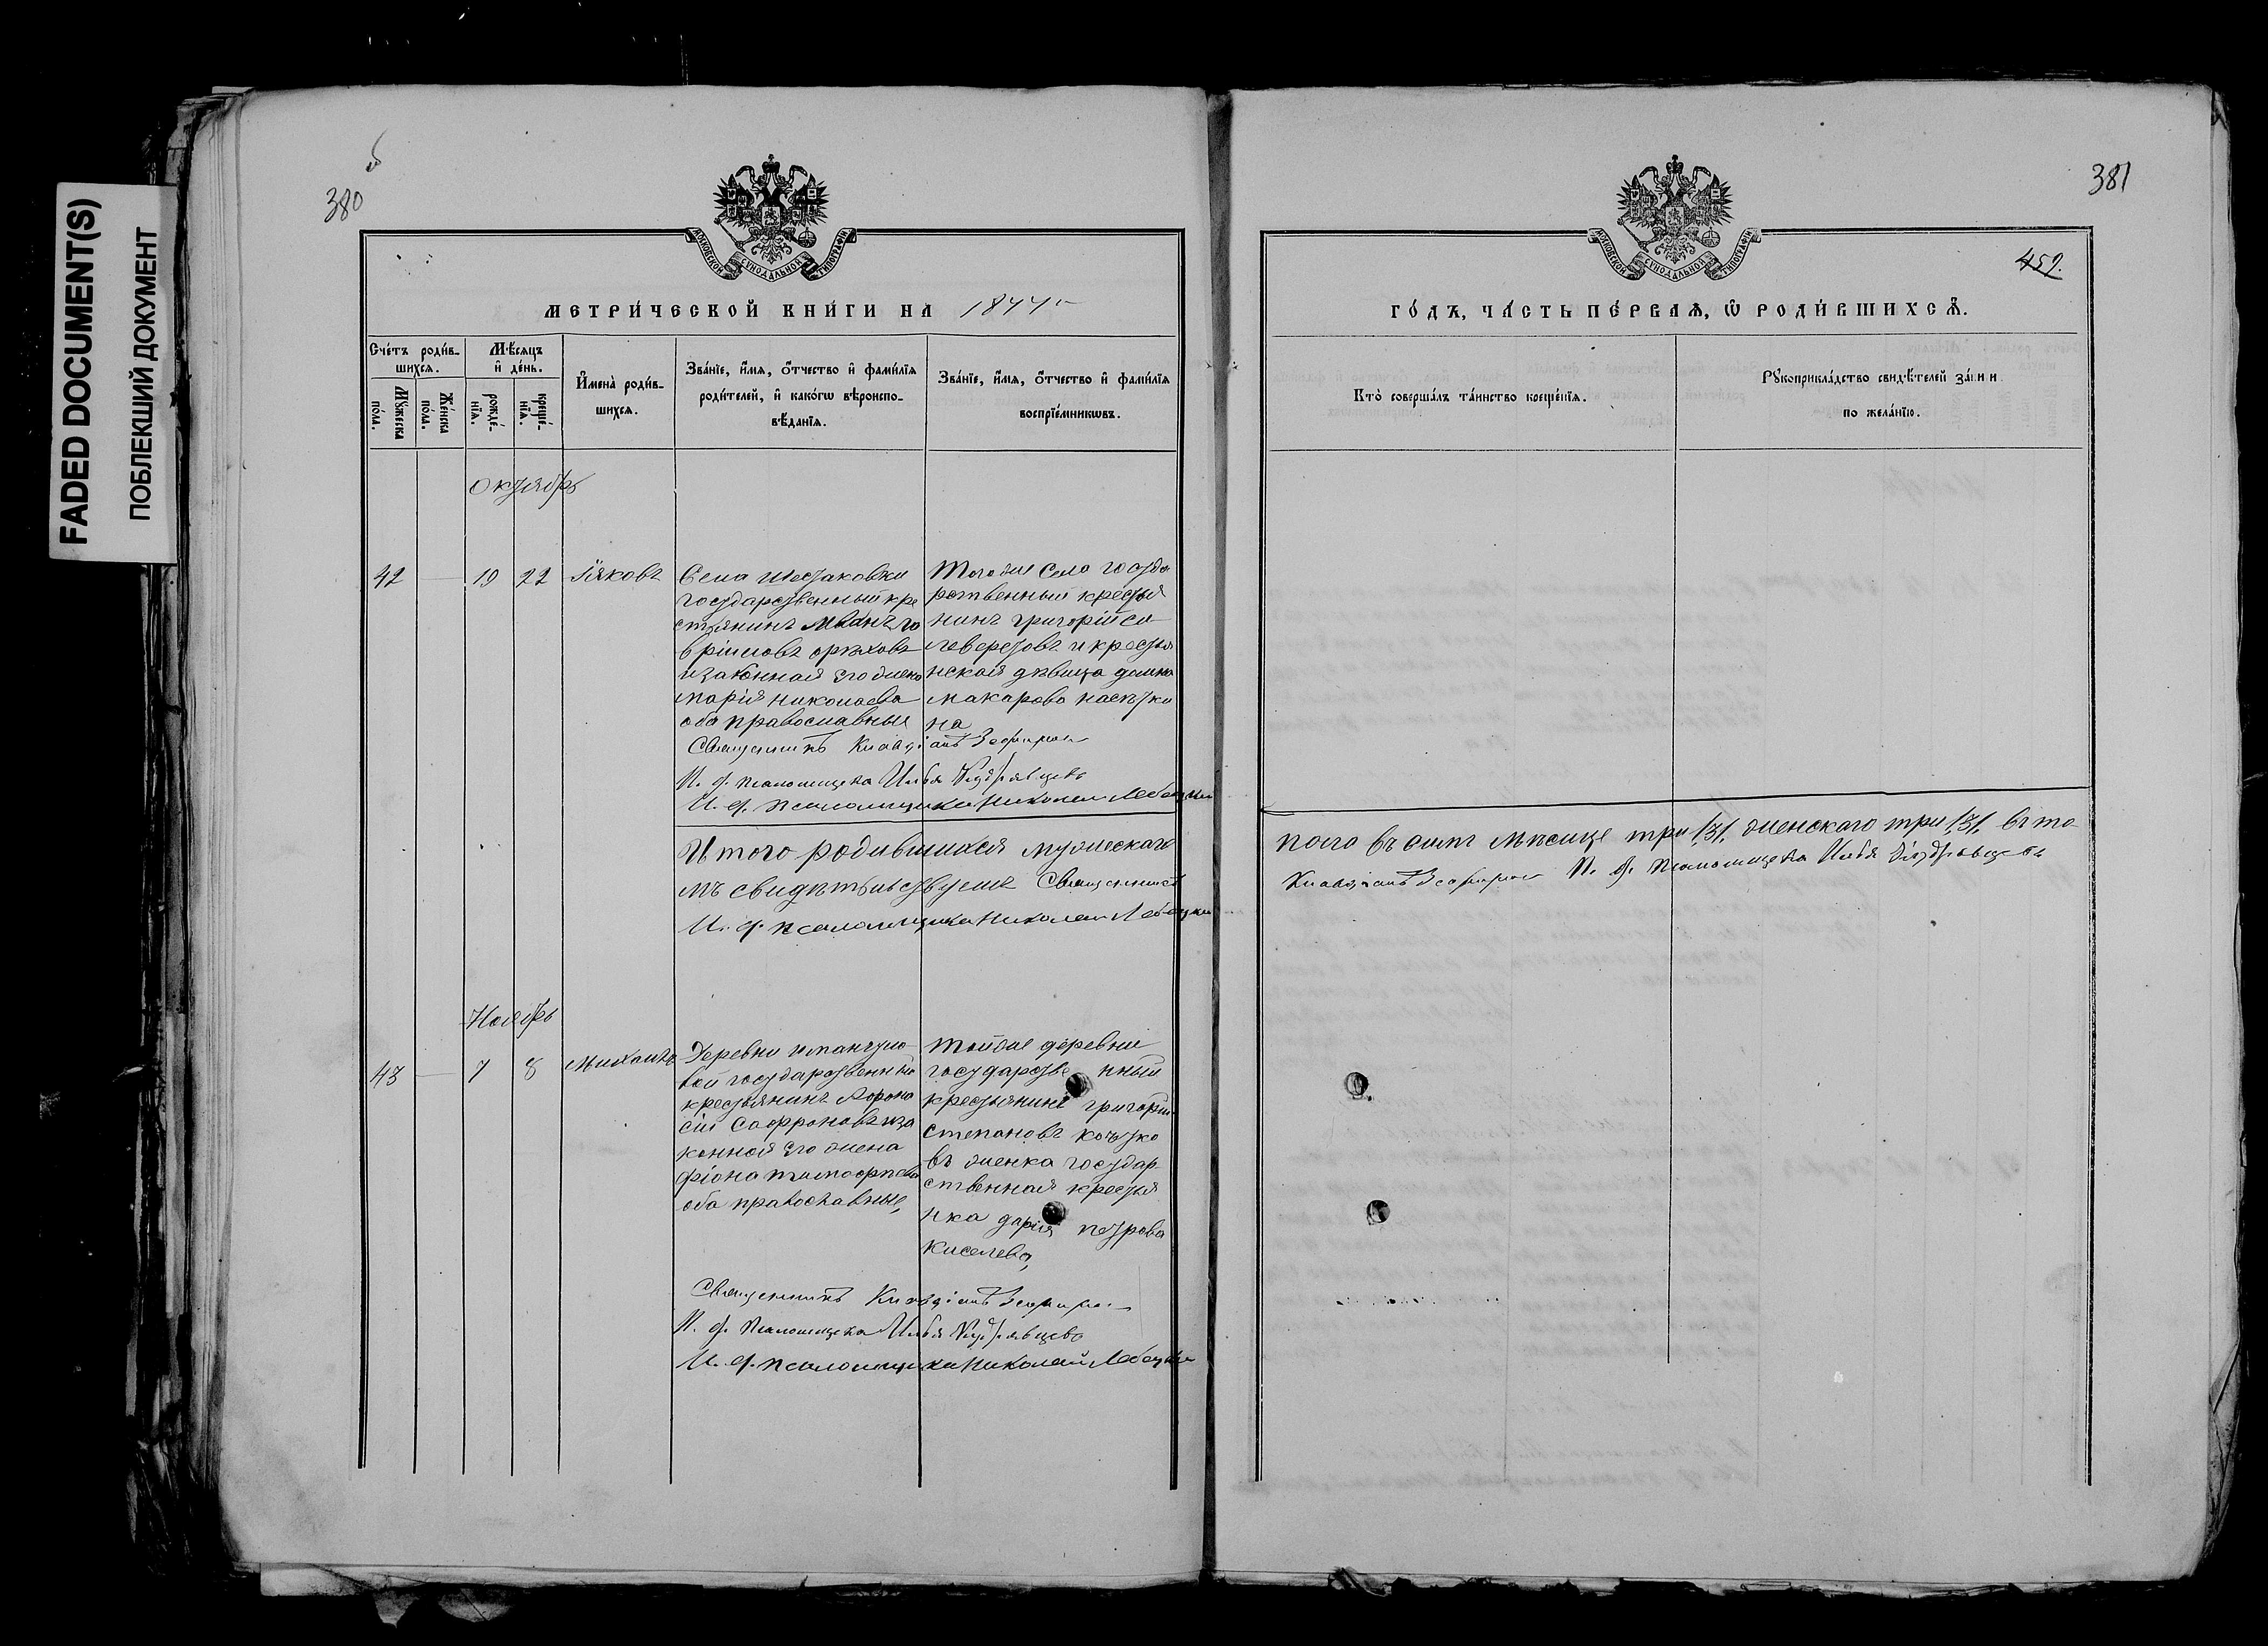 FADED DOCUMENT(S)
ПОБЛЕКШИЙ ДОКУМЕНТ
380
МОСКОВСКОЙ СѴНОДАЛЬНОЙ ТИПОГРАФІИ
МЕТРИ́ЧЕСКОЙ КНИ́ГИ НА 1877
Сче́тъ роди́в-
шихсѧ.
Мѣ́сѧцъ
и҆ де́нь.
Мꙋ́жеска
по́ла.
Же́нска
по́ла.
рожде́-
нїѧ.
креще́-
нїѧ.
И҆мена̀ роди́в-
шихсѧ.
Зва́нїе, и҆́мѧ, ѻ҆́тчество и҆ фами́лїѧ
роди́телей, и҆ како́гѡ вѣроиспо-
вѣ́данїѧ.
Зва́нїе, и҆́мѧ, ѻ҆́тчество и҆ фами́лїѧ
воспрїе́мникѡвъ.
октябрь
42 19 22 Іяковъ
Села Шестаковки
государственный кре
стянинъ Иванъ
ореховъ
изаконная его жена
Марія николаева
оба православные
Тогоже села госуда
рственный крестья
нинъ григорій се
и крестья
нская дѣвица
макарова
на
Священникъ
И. д. псаломщика Илья Кудрявцевъ
И. д. псаломщика Николай
Итого родившихся мужескаго
мъ свидѣтельствуемъ Священникъ
И. д. псаломщика Николай
Ноябрь
43 7 8 Михаилъ
Деревни
вой государственный
крестьянинъ Афона
сій Софроновъ иза
конная его жена
тимофѣева
оба православные,
тойже деревни
государстве нный
крестьянинъ григорій
степановъ
въ женка государ
ственная крестья
нка дарія петрова
Киселева,
Священникъ
И. д. псаломщика Илья Кудрявцевъ
И. д. псаломщика Николай
381
МОСКОВСКОЙ СѴНОДАЛЬНОЙ ТИПОГРАФІИ
459.
ГО́ДЪ, ЧА́СТЬ ПЕ́РВАѦ, Ѡ҆ РОДИ́ВШИХСѦ.
Кто̀ соверша́лъ та́инство креще́нїѧ.
Рꙋкоприкла́дство свидѣ́телей за́писи
по жела́нїю.
пола въ симъ мѣсяце три /3/, женскаго три /3/, въ то
И. д. псаломщика Илья Кудрявцевъ